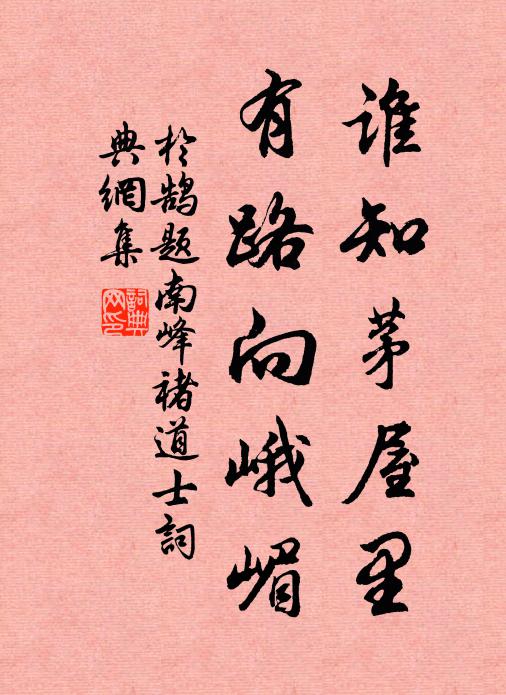 谁知茅屋里
有路向峨嵋
於鹄题南峰褚道士詞
典網集
詞典
网印